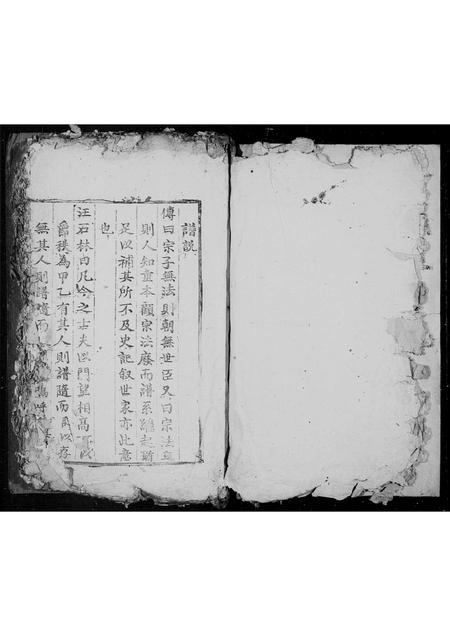 譜説
傳曰宗子無法則朝無世臣又曰宗法立
則人知重本顧宗法廢而譜系雖起猶
足以補其所不及史記叙世家亦此意
也
汪石林曰凡今之士夫以門望相高
爵秩為甲乙有其人則譜隨而以存
無其人則譜隨而